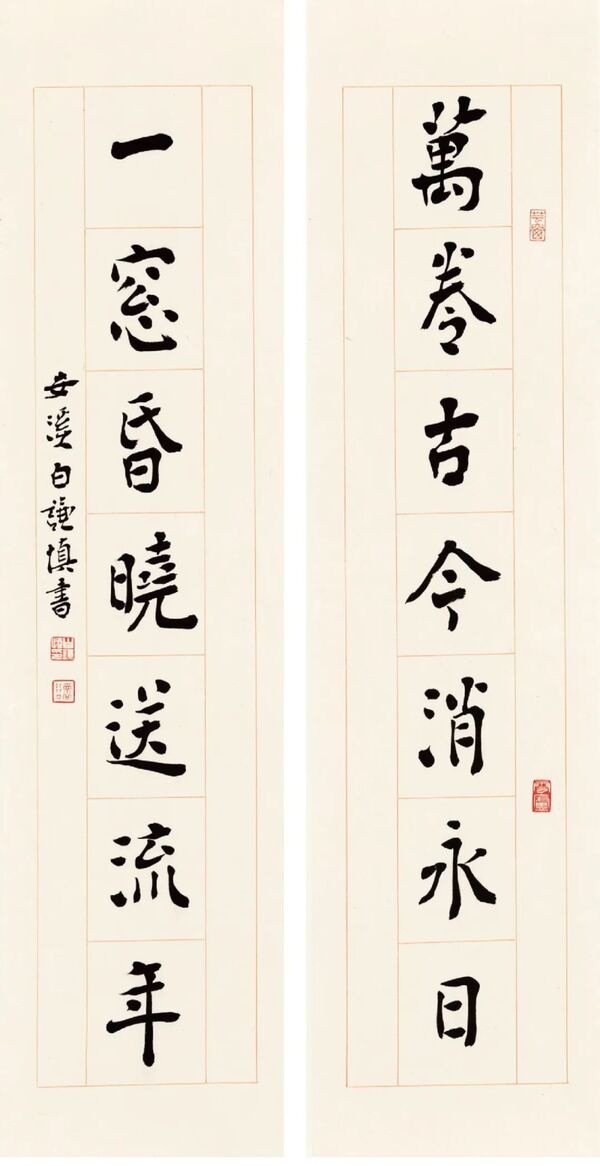 萬卷古今消永日
一窓昏曉送流年
安溪白謙慎書